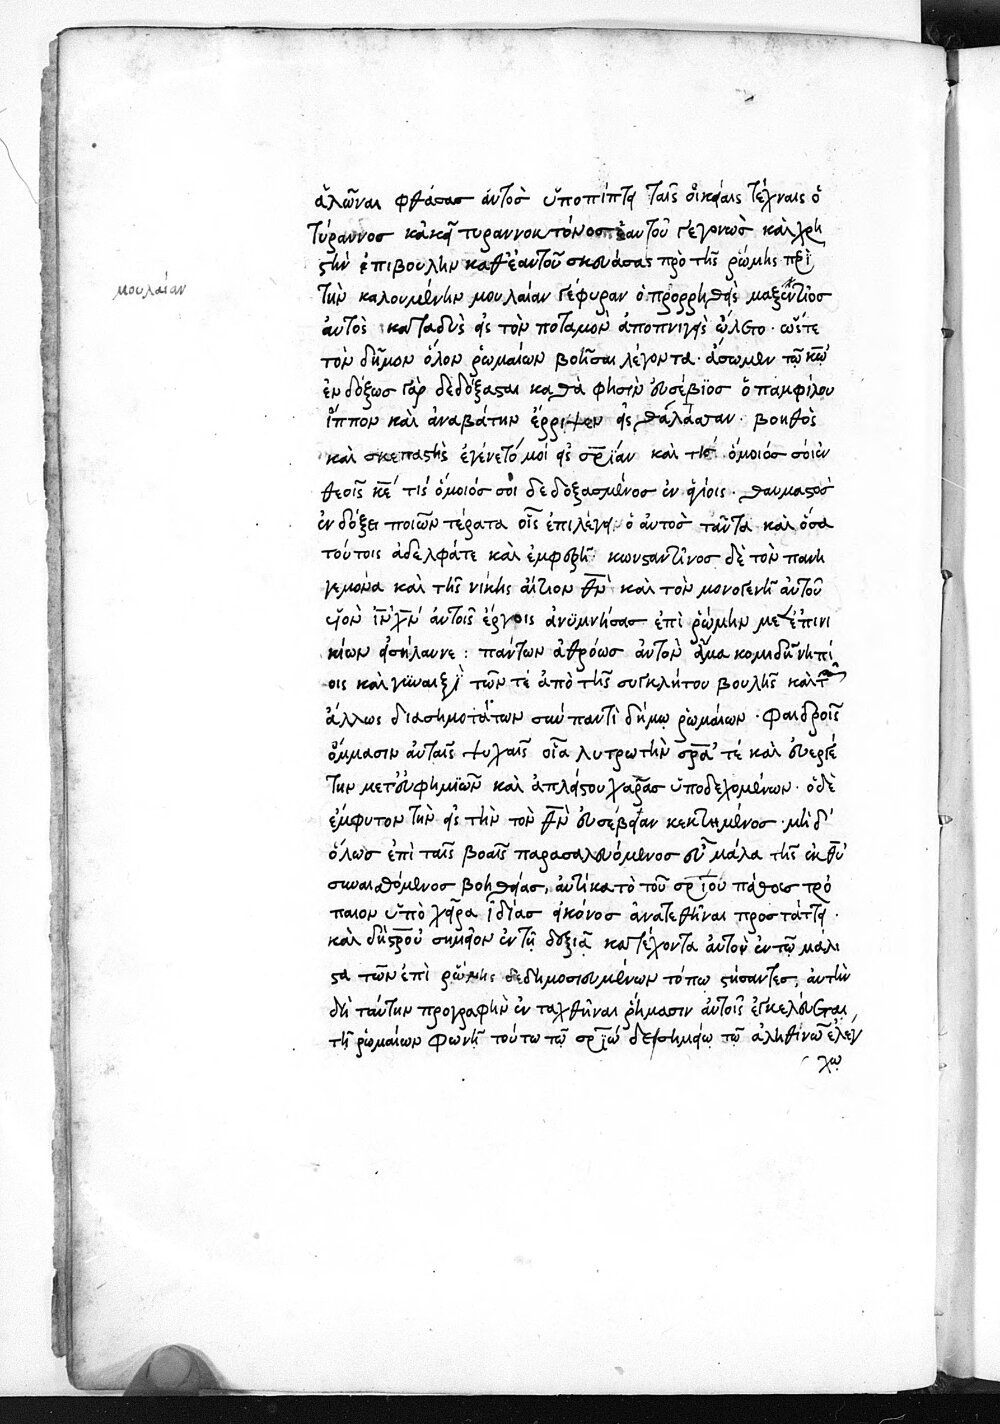 ἁλῶναι φθάσας αὐτὸς ὑποπίπτει ταῖς οἰκείαις τέχναις ὁ
τύραννος κἀκεῖ τυραννοκτόνος ἑαυτοῦ γεγονὼς καὶ χρη
στὴν ἐπιβουλὴν καθ' ἑαυτοῦ σκευάσας πρὸ τῆς ῥώμης περὶ
μουλαίαν
τὴν καλουμένην μουλαίαν γέφυραν ὁ προρρηθεὶς μαξέντιος
αὐτὸς καταδὺς εἰς τὸν ποταμὸν ἀποπνιγεὶς ὤλετο· ὥστε
τὸν δῆμον ὅλον ῥωμαίων βοῆσαι λέγοντα· ἄσωμεν τῷ κω
ἐνδόξως γὰρ δεδόξασται καθά φησιν εὐσέβϊος ὁ παμφίλου
ἵππον καὶ ἀναβάτην ἔρριψεν εἰς θάλασσαν· βοηθὸς
καὶ σκεπαστὴς ἐγένετό μοι εἰς σρίαν καὶ τίς ὅμοιός σοι ἐν
θεοῖς κε τίς ὅμοιός σοι δεδοξασμένος ἐν ἁγίοις· θαυμαστὸς
ἐν δόξει ποιῶν τέρατα οἷς ἐπιλέγει ὁ αὐτὸς ταῦτα καὶ ὅσα
τούτοις ἀδελφά τε καὶ ἐμφερῆ· κωνσταντῖνος δὲ τὸν πανη
γεμόνα καὶ τῆς νίκης αἴτιον θν καὶ τὸν μονογενῆ αὐτοῦ
υἱὸν ιν χν αὐτοῖς ἔργοις ἀνϋμνήσας ἐπὶ ῥώμην μετ' ἐπινι
κίων εἰσήλαυνε: πάντων ἀθρόως αὐτὸν ἅμα κομιδῇ νηπί
οις καὶ γϋναιξὶ τῶν τε ἀπὸ τῆς συγκλήτου βουλῆς καὶ τῶν
ἄλλως διασημοτάτων σὺν παντὶ δήμῳ ῥωμαίων· φαιδροῖς
ὄμμασιν αὐταῖς ψυχαῖς οἷα λυτρωτὴν σρα τε καὶ εὐεργέ
την μετ' εὐφημϊῶν καὶ ἀπλήστου χαρᾶς ὑποδεχομένων· ὁ δὲ
ἔμφυτον τὴν εἰς τὴν τὸν θν εὐσέβειαν κεκτημένος· μηδ'
ὅλως ἐπὶ ταῖς βοαῖς παρασαλευόμενος εὖ μάλα τῆς ἐκ θυ
συναισθόμενος βοηθείας, αὐτίκα τὸ τοῦ σρίου πάθους τρό
παιον ὑπὸ χεῖρα ἰδίας εἰκόνος ἀνατεθῆναι προστάττει·
καὶ δὴ σρου σημεῖον ἐν τῇ δεξιᾷ κατέχοντα αὐτὸν ἐν τῷ μάλι
στα τῶν ἐπὶ ῥώμης δεδημοσιευμένων τόπῳ στήσαντες, αὐτὴν
δὴ ταύτην προγραφὴν ἐνταχθῆναι ῥήμασιν αὐτοῖς ἐγκελεύεται
τῇ ῥωμαίων φωνῇ τούτω τῷ σρίω δει σημείῳ τῷ ἀληθινῷ ἐλέγ
χῳ